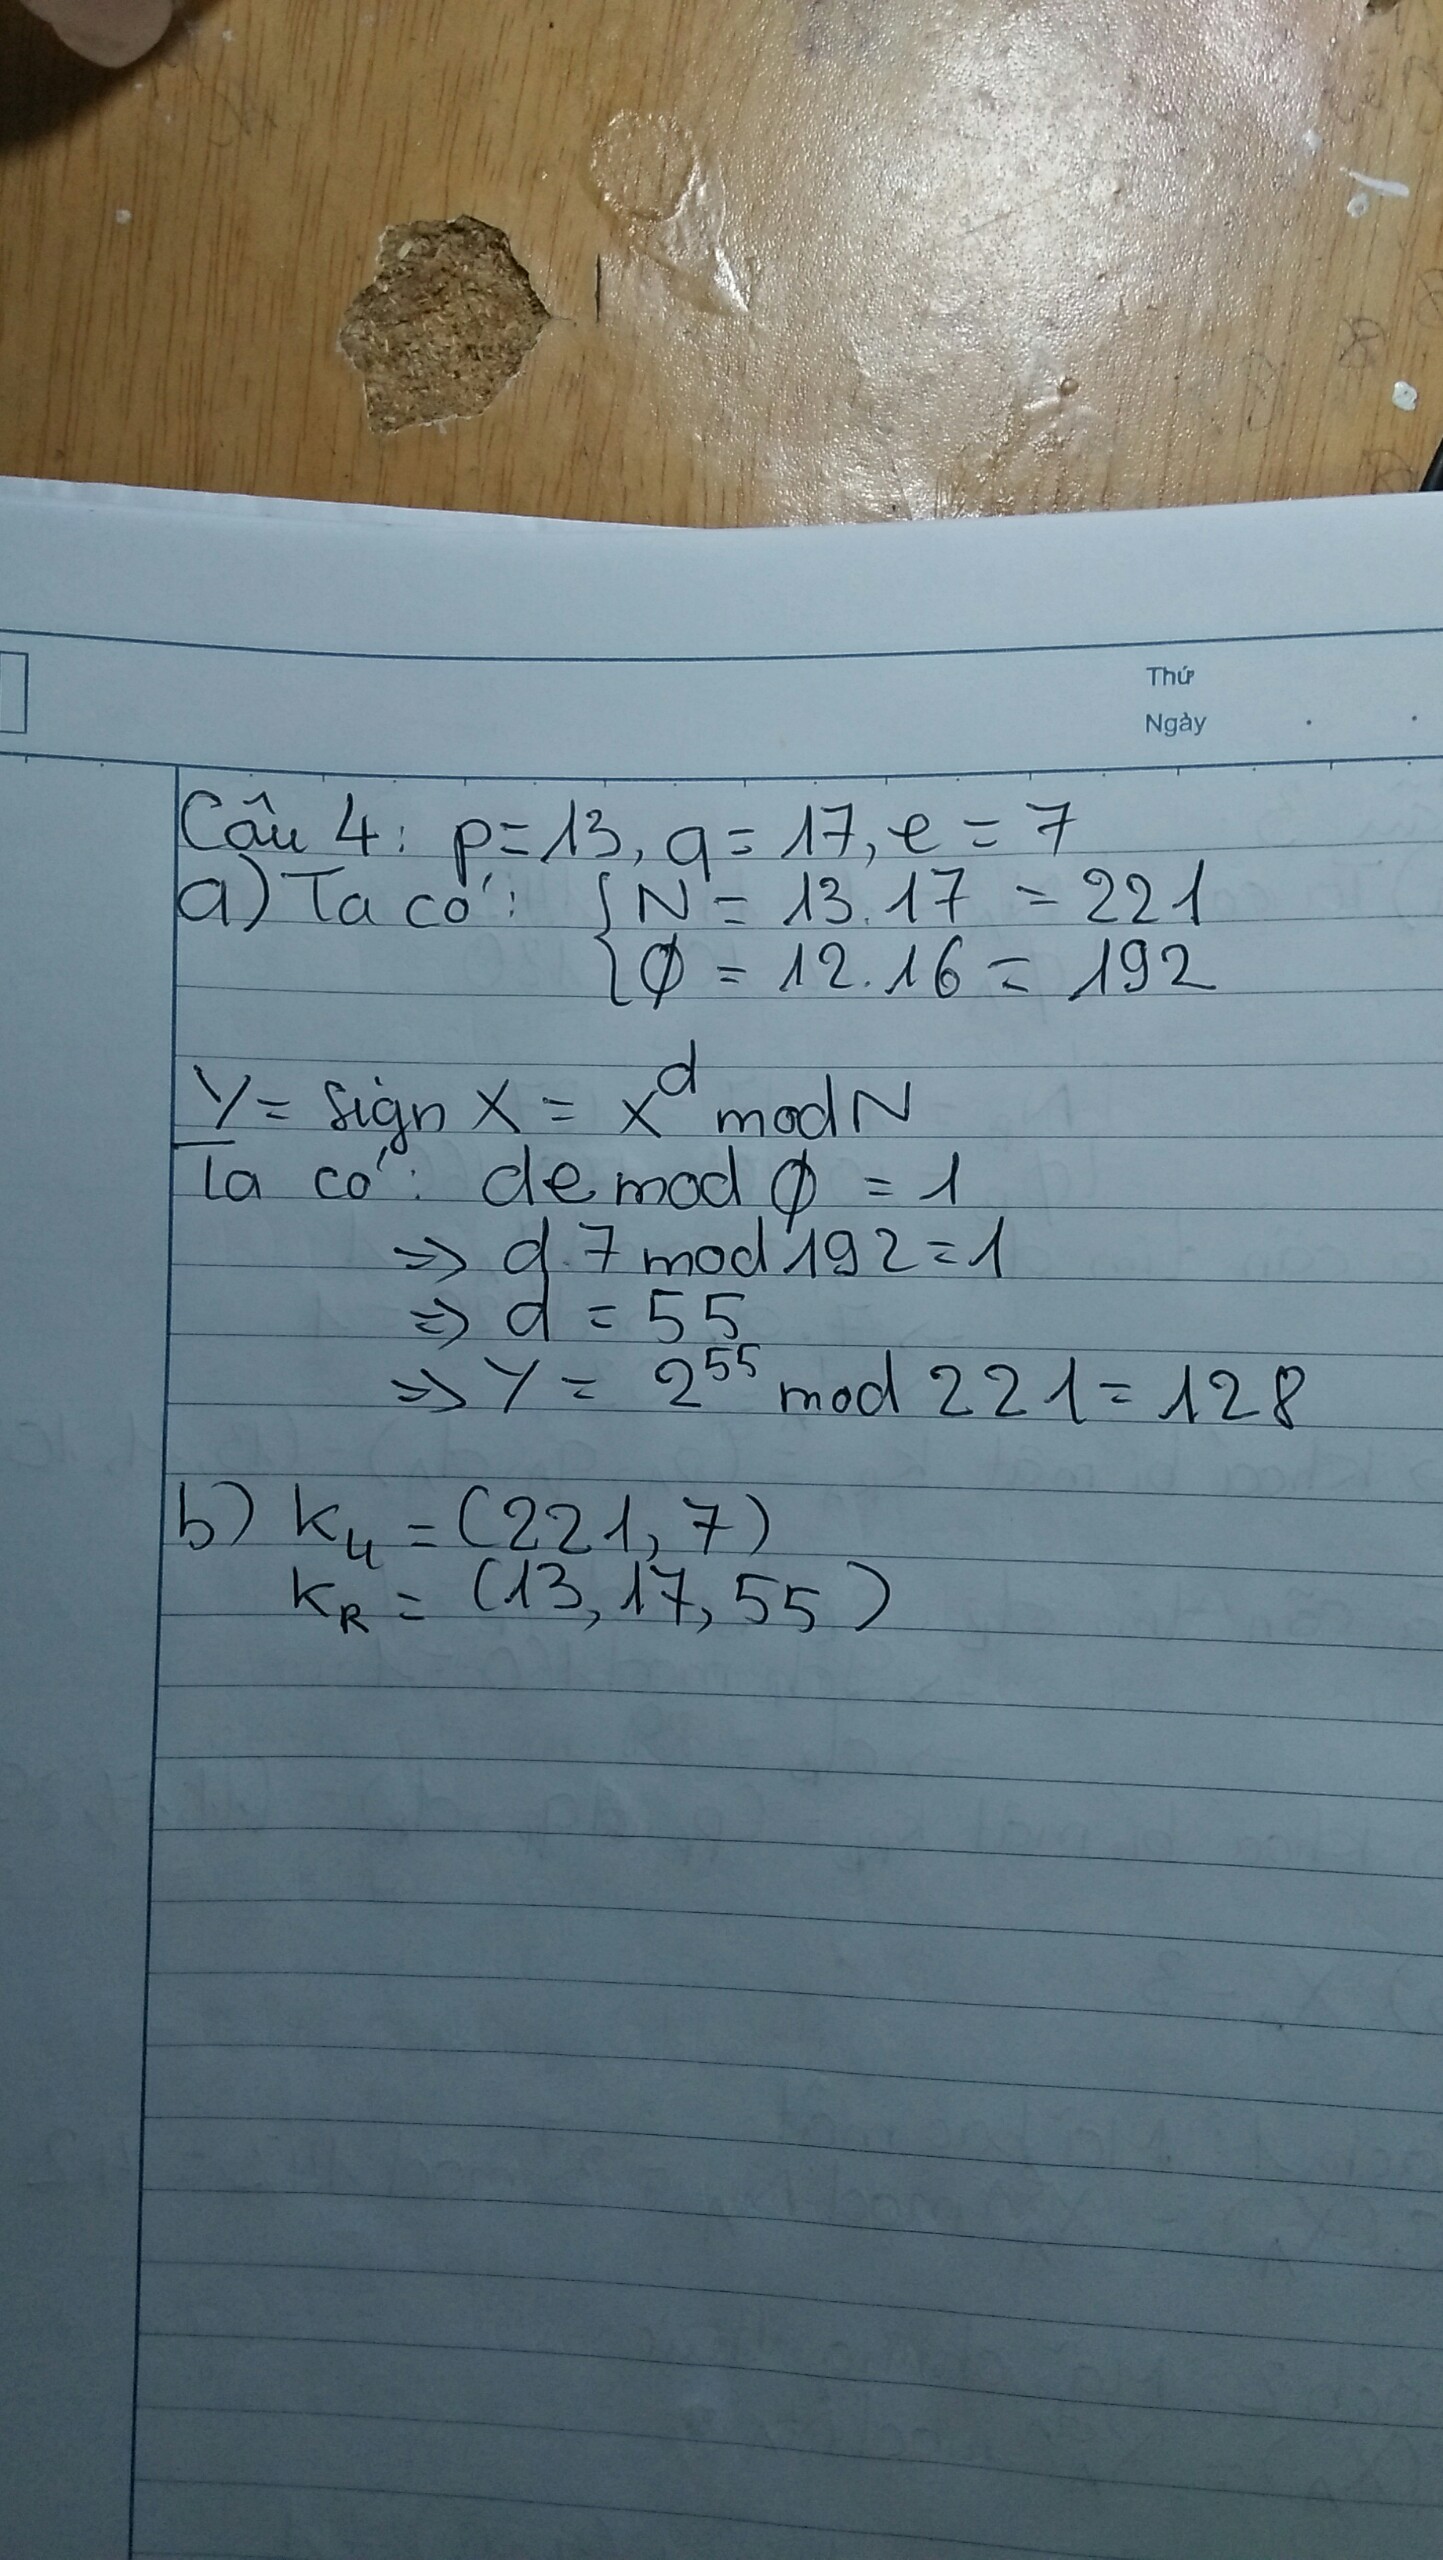 Thứ
Ngày
Câu 4: p=13, q=17, e=7
a) Ta có: { N = 13.17 = 221
Ø = 12.16 = 192
Y = sign X = x^d mod N
Ta có: de mod Ø = 1
=> d.7 mod 192 = 1
=> d = 55
=> Y = 2^55 mod 221 = 128
b) K_u = (221, 7)
K_R = (13, 17, 55)